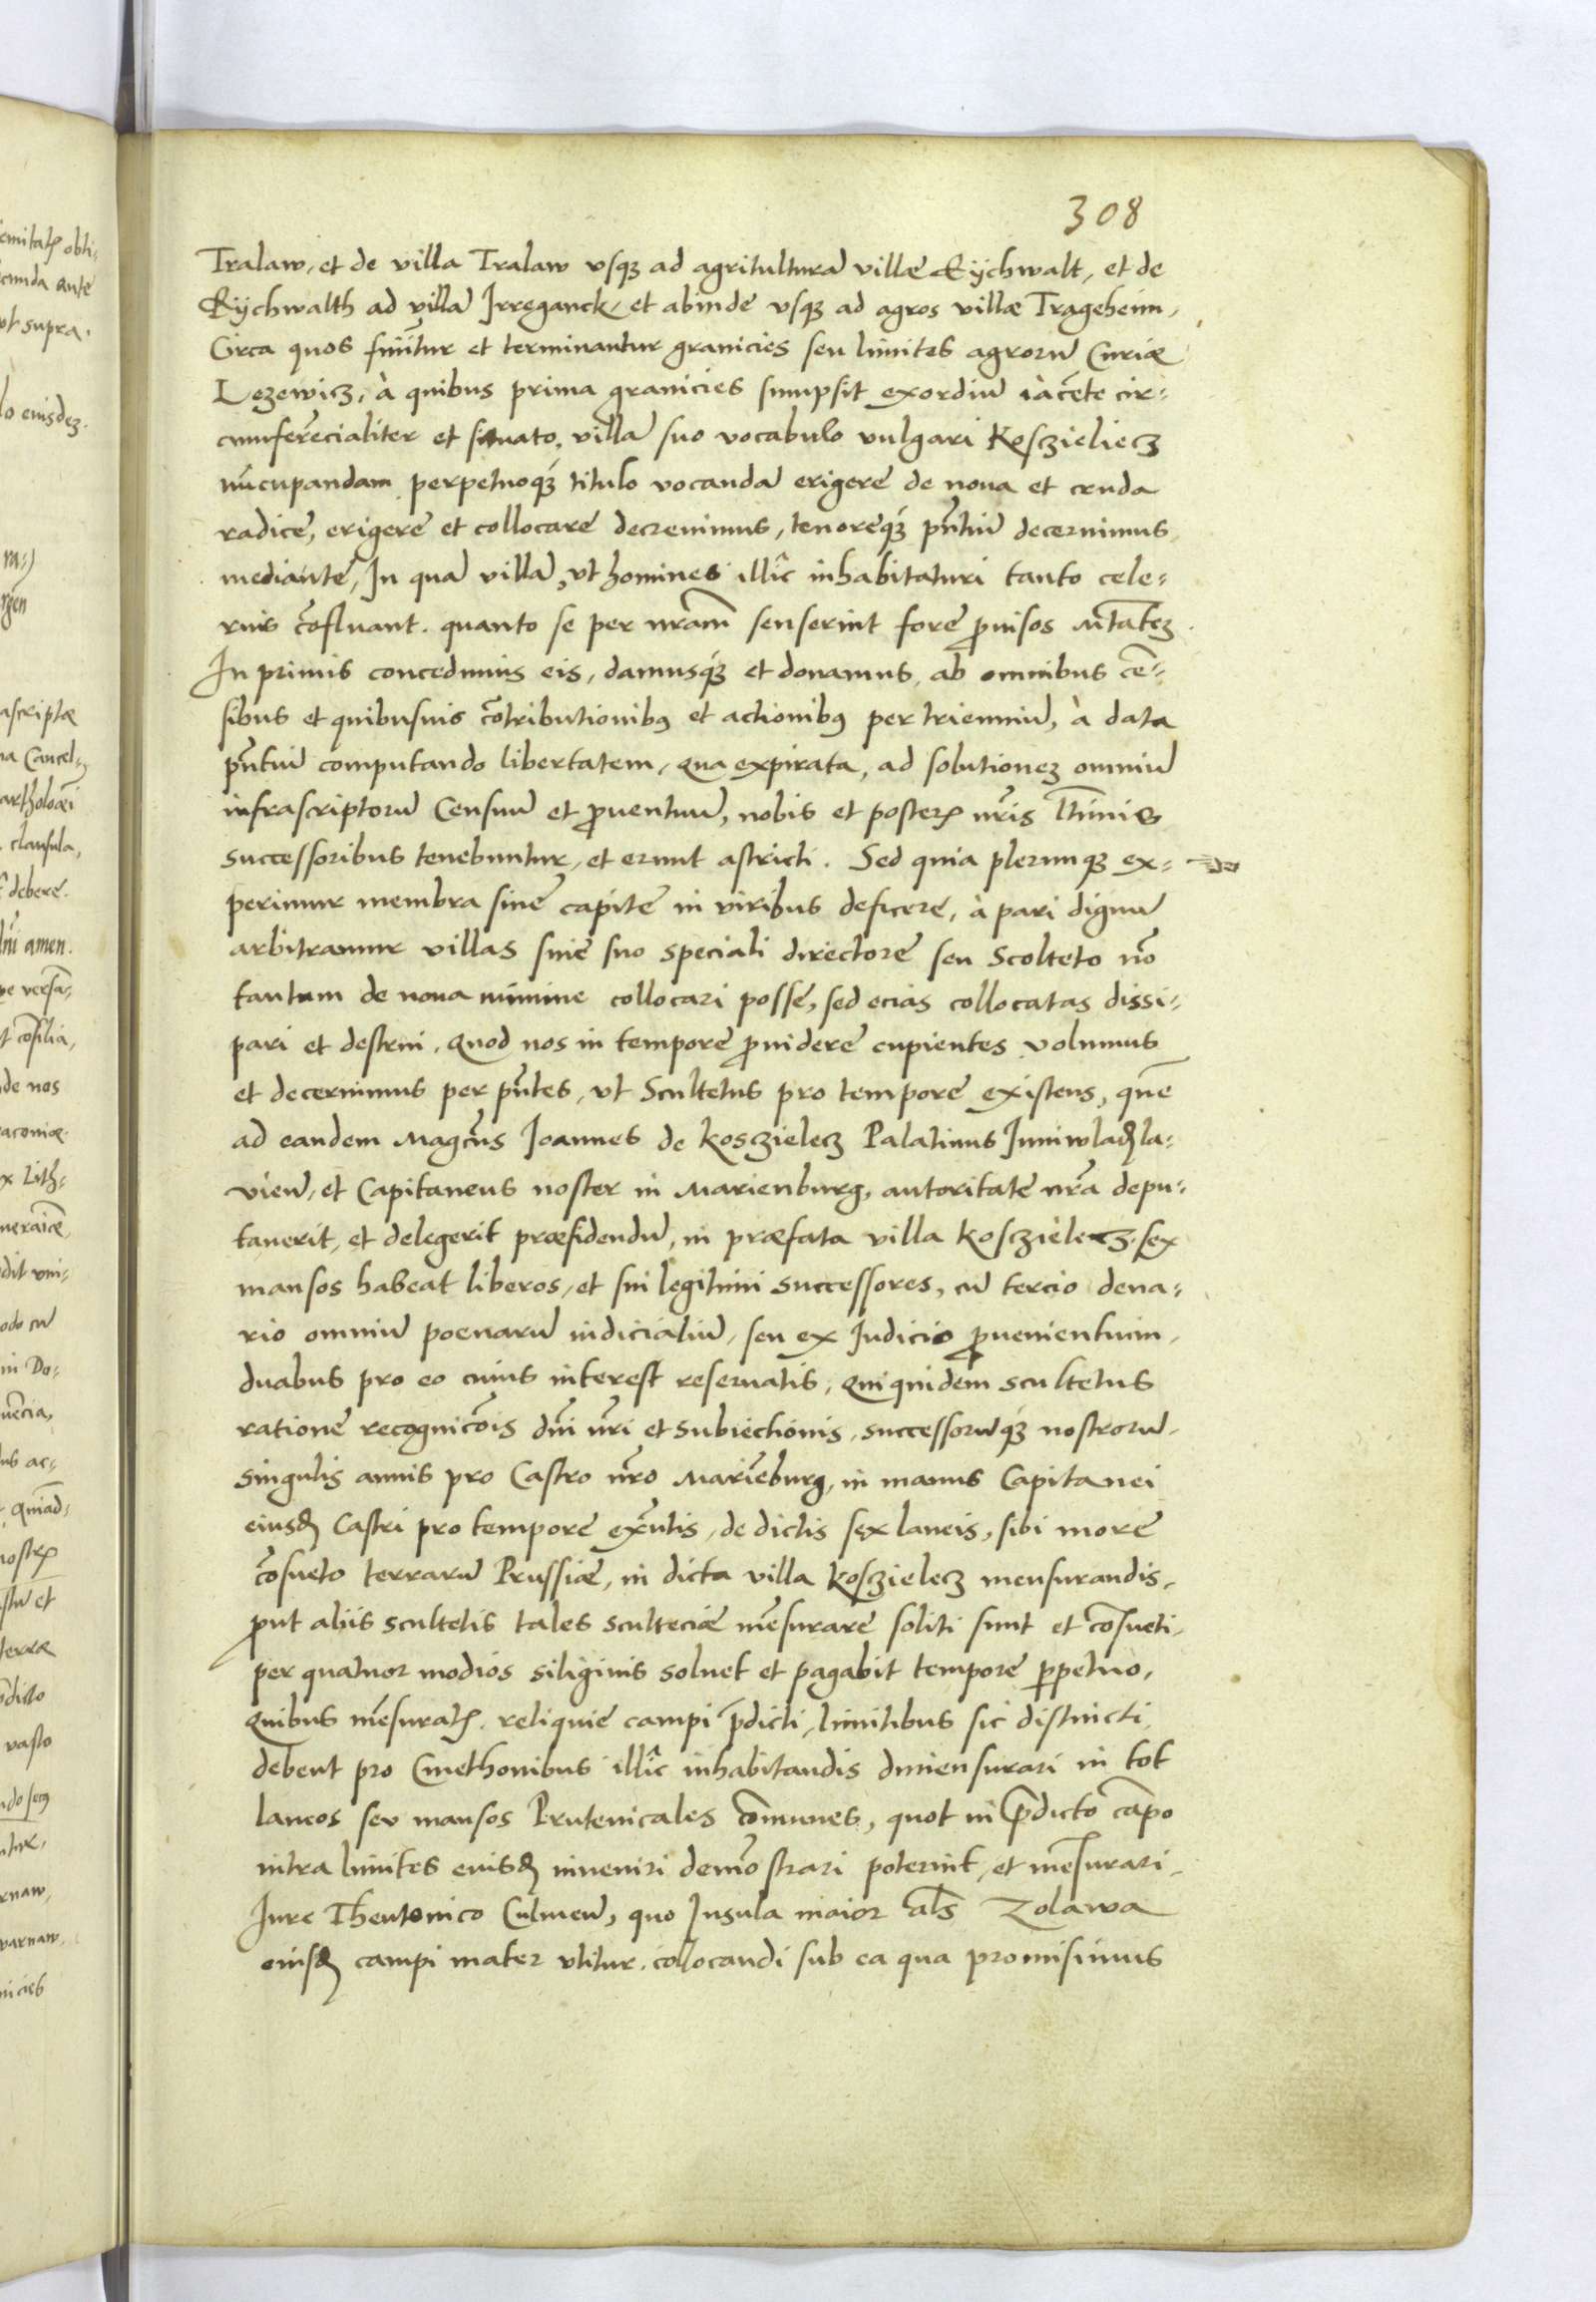 308
Tralaw, et de villa Tralaw vsqꝫ ad agriculturā villæ Eychwalt, et de
Eychwalth ad villā Irreganck, et abinde vsqꝫ ad agros villæ Trageheim,
Circa quos finiūtur et terminantur granicies seu limites agrorū Curiæ
Lezewicz, à quibus prima granicies sumpsit exordiū iacēte cir-
cumferēcialiter et situato, villā suo vocabulo vulgari Koszieliecz
nūcupandam perpetuoqꝫ titulo vocandā erigere de noua et cruda
radice, erigere et collocare decreuimus, tenoreqꝫ pn̄tiū decernimus
mediante, In qua villa, vt homines illic inhabitaturi tanto cele-
rius cōfluant. quanto se per nr̄am senserint fore ꝓuisos Mtāteꝫ.
In primis concedimus eis, damusqꝫ et donamus, ab omnibus cē-
sibus et quibusuis cōtributionibꝰ et actionibꝰ per trienniū, à data
pn̄tiū computando libertatem, qua expirata, ad solutioneꝫ omniū
infrascriptorū Censuū et ꝓuentuū, nobis et posterꝭ nr̄is lt̄imis
successoribus tenebuntur, et erunt astricti. Sed quia plerunqꝫ ex-
perimur membra sine capite in viribus deficere, à pari dignū
arbitramur villas sine suo speciali directore seu Scolteto nō
tantum de noua mimine collocari posse, sed ecias collocatas dissi-
pari et destrui, quod nos in tempore ꝓuidere cupientes volumus
et decernimus per pn̄tes, vt Scultetus pro tempore existens, quē
ad eandem Magcūs Joannes de Koszielecz Palatinus Juniwladisla-
vien̄, et Capitaneus noster in Marienburg, autoritate nr̄a depu-
tauerit, et delegerit præsidendū, in præfata villa Koszielecz, sex
mansos habeat liberos, et sui legitimi successores, cū tercio dena-
rio omniū poenarū iudicialiū, seu ex Iudicio ꝓuenientium,
duabus pro eo cuius interest reseruatis, qui quidem scultetus
ratione recognicōis dn̄i nr̄i et subiectionis, successorūqꝫ nostrorū,
singulis annis pro Castro nr̄o Mariēburg, in manus Capitanei
eiusdꝫ Castri pro tempore exn̄tis, de dictis sex laneis, sibi more
cōsueto terrarū Prussiæ, in dicta villa Koszielecz mensurandis,
ꝓut aliis scultetis tales scultecie mēsurare soliti sunt et cōsueti,
per quatuor modios siliginis soluet et pagabit tempore ꝑpetuo,
Quibus mēsuratꝭ. reliquie campi p̄dicti, limitibus sic distincti,
debent pro Cmethonibus illic inhabitandis dimensurari in tot
laneos seu mansos Prutenicales cōmunes, quot in p̄dicto cāpo
intra limites euisdꝫ inueniri demōstrari poterint, et mēsurari,
Jure Theutonico Culmen̄, quo Insula maior als̄ Zolawa
eiusdꝫ campi mater vtitur, collocandi sub ea qua promisimus